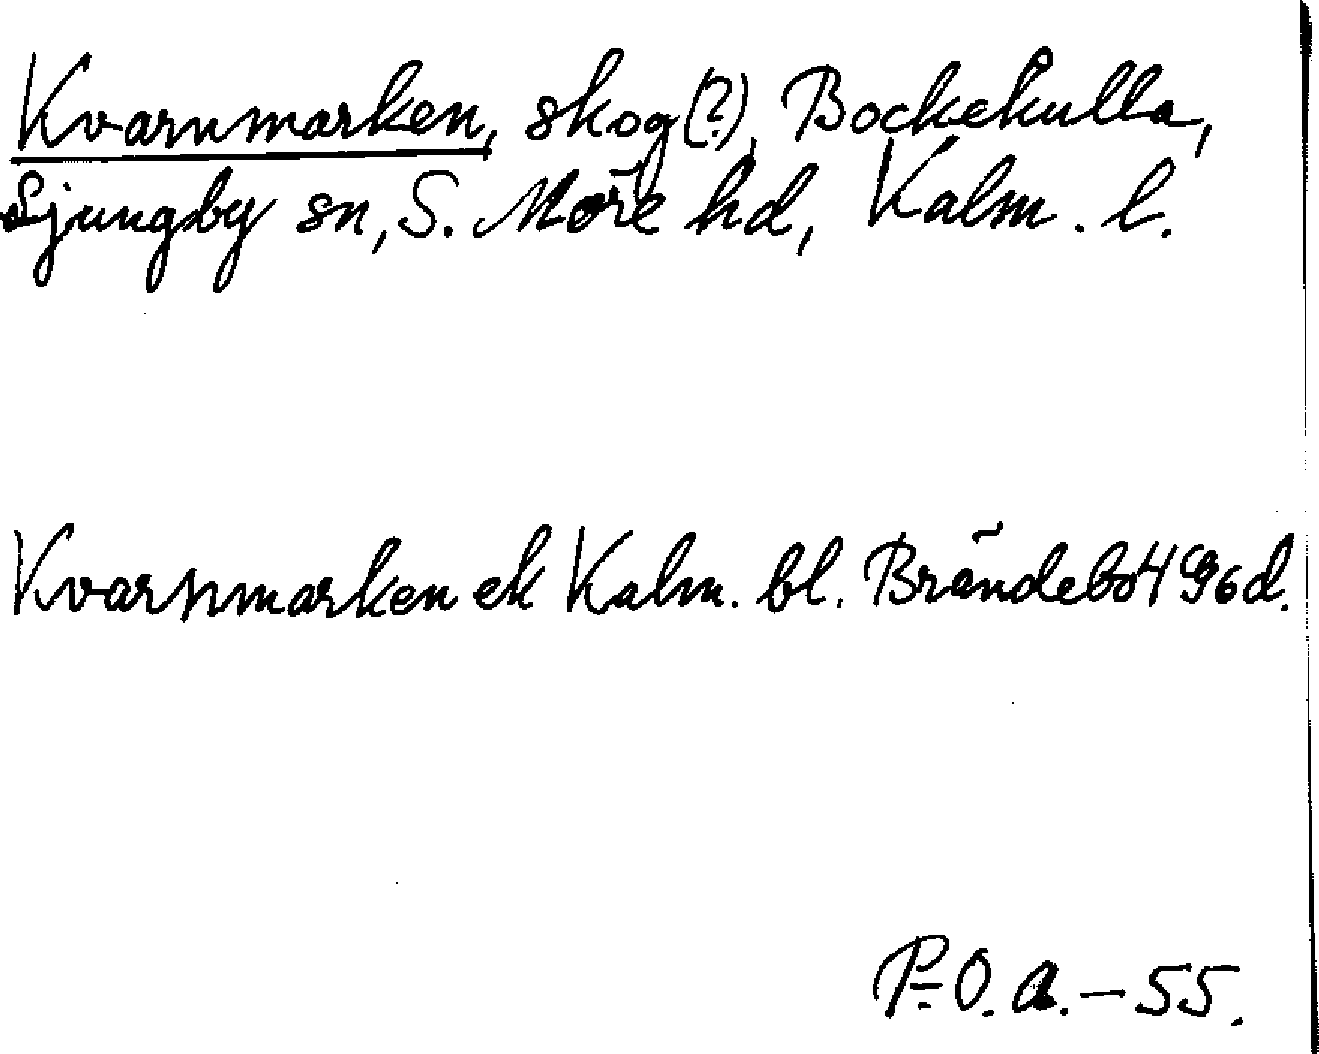 Kvarnmarken, skog(?), Bockekulla,
Ljungby sn, S. Möre hd, Kalm. l.
Kvarnmarken ek Kalm. bl. Brändebo 4 96 d.
P-O. a. - 55.